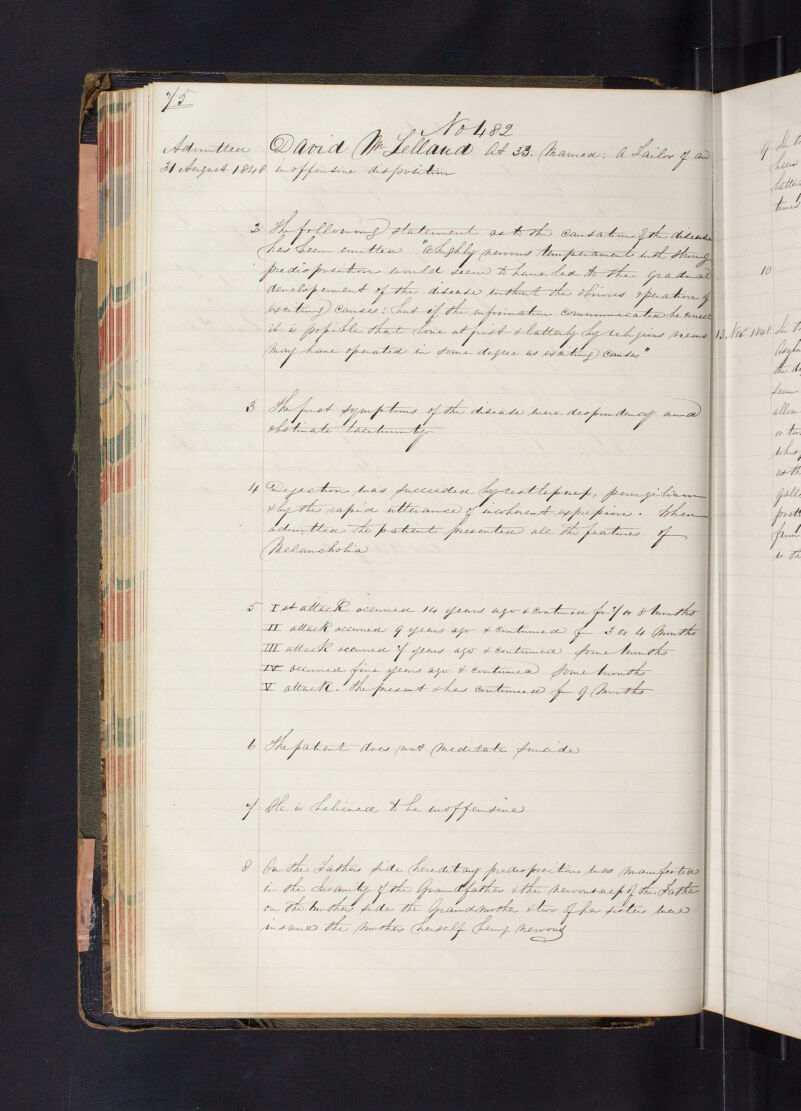 75
No 482
Admitted David McLelland Æt 33. Married; a Tailor of an
31 August 1848 inoffensive disposition
2 The following statement as to the causation of the disease
has been emitted "a highly nervous temperament with strong
predisposition would seem to have led to the gradual
developement of the disease without the obvious operation of
exciting causes: but if the information communicated be correct
it is possible that love at first & latterly by religious views
may have operated in some degree as exciting causes"
3 The first symptoms of the disease were despondency and
obstinate taciturnity
4 Dejection was succeeded by restlessness, pervigilium
& by the rapid utterance of incoherent expressions. When
admitted the patient presented all the features of
Melancholia
5 Ist attack occurred 14 years ago & continued for 7 or 8 months
II attack occurred 9 years ago & continued for 3 or 4 Months
III attack occurred 7 years ago & continued some months
IV occurred five years ago & continued some months
V attack. The present & has continued for 9 Months
6 The patient does not meditate suicide
7 He is believed to be inoffensive
8 On the Fathers side hereditary predisposition was manifested
in the Insanity of the Grandfather & the nervousness of the Father
on the mothers side the Grandmother & two of her sisters were
insane the mother herself being nervous
9
10
13. Nov 1848